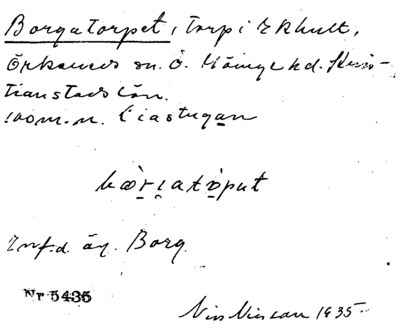 Borgatorpet, torp i Ekhult,
Örkeneds sn. Ö. Göinge hd. Kris-
tianstads län.
100 m. n. Liastugan
bœ̀rıatòput
Inf. d. äg. Borg.
Nr 5435
Nils Nilsson 1935.